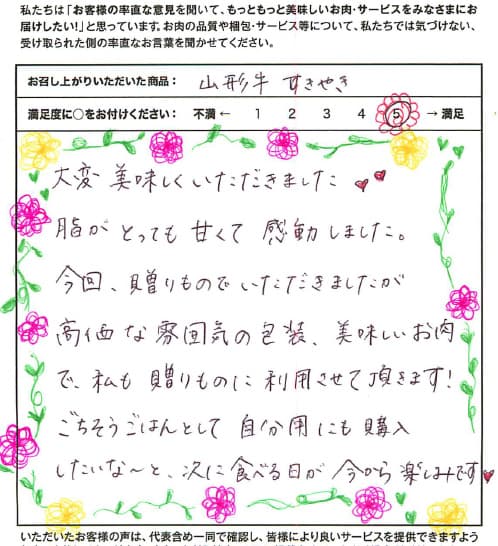 私たちは「お客様の率直な意見を聞いて、もっともっと美味しいお肉・サービスをみなさまにお
届けしたい！」と思っています。お肉の品質や梱包・サービス等について、私たちでは気づけない、
受け取られた側の率直なお言葉を聞かせてください。
お召し上がりいただいた商品： 山形牛 すきやき
満足度に○をお付けください： 不満 ← 1 2 3 4 5 → 満足
大変美味しくいただきました
脂がとっても甘くて感動しました。
今回、贈りものでいただきましたが
高価な雰囲気の包装、美味しいお肉
で、私も贈りものに利用させて頂きます!
ごちそうごはんとして自分用にも購入
したいな〜と、次に食べる日が今から楽しみです
いただいたお客様の声は、代表含め一同で確認し、皆様により良いサービスを提供できますよう